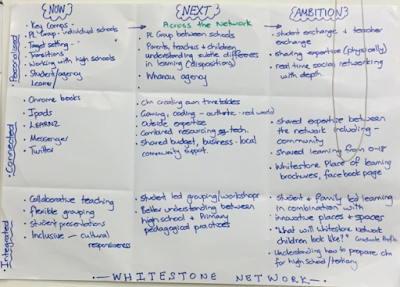 NOW
NEXT
AMBITION
Across the Network
Personalised
Key Comps
PL Group - individual schools
Target setting
Transitions
Working with high schools
Student/agency
Learner
PL Group between schools
Parents, teachers + children
understanding subtle differences
in learning (dispositions)
Whanau agency
Student exchange + teacher
exchange
sharing expertise (physically)
real time social networking
with depth.
Connected
Chrome books
Ipads
LEARNZ
Messenger
Twitter
Chn creating own timetables
Gaming, coding - authentic - real world
Outside expertise
Combined resourcing eg tech.
Shared budget, business - local
community support.
Shared expertise between
the network including -
community
Shared learning from 0-18
Whitestone Place of learning
brochures, face book page
Integrated
Collaborative teaching
flexible grouping
Student presentations
Inclusive - cultural
responsiveness
Student led grouping/workshops
Better understanding between
high school + Primary
pedagogical practices
Student + Family led learning
in combination with
innovative places + spaces
"What will Whitestone Network
children look like?" Graduate Profile
Understanding how to prepare chn
for high school/tertiary
WHITESTONE NETWORK